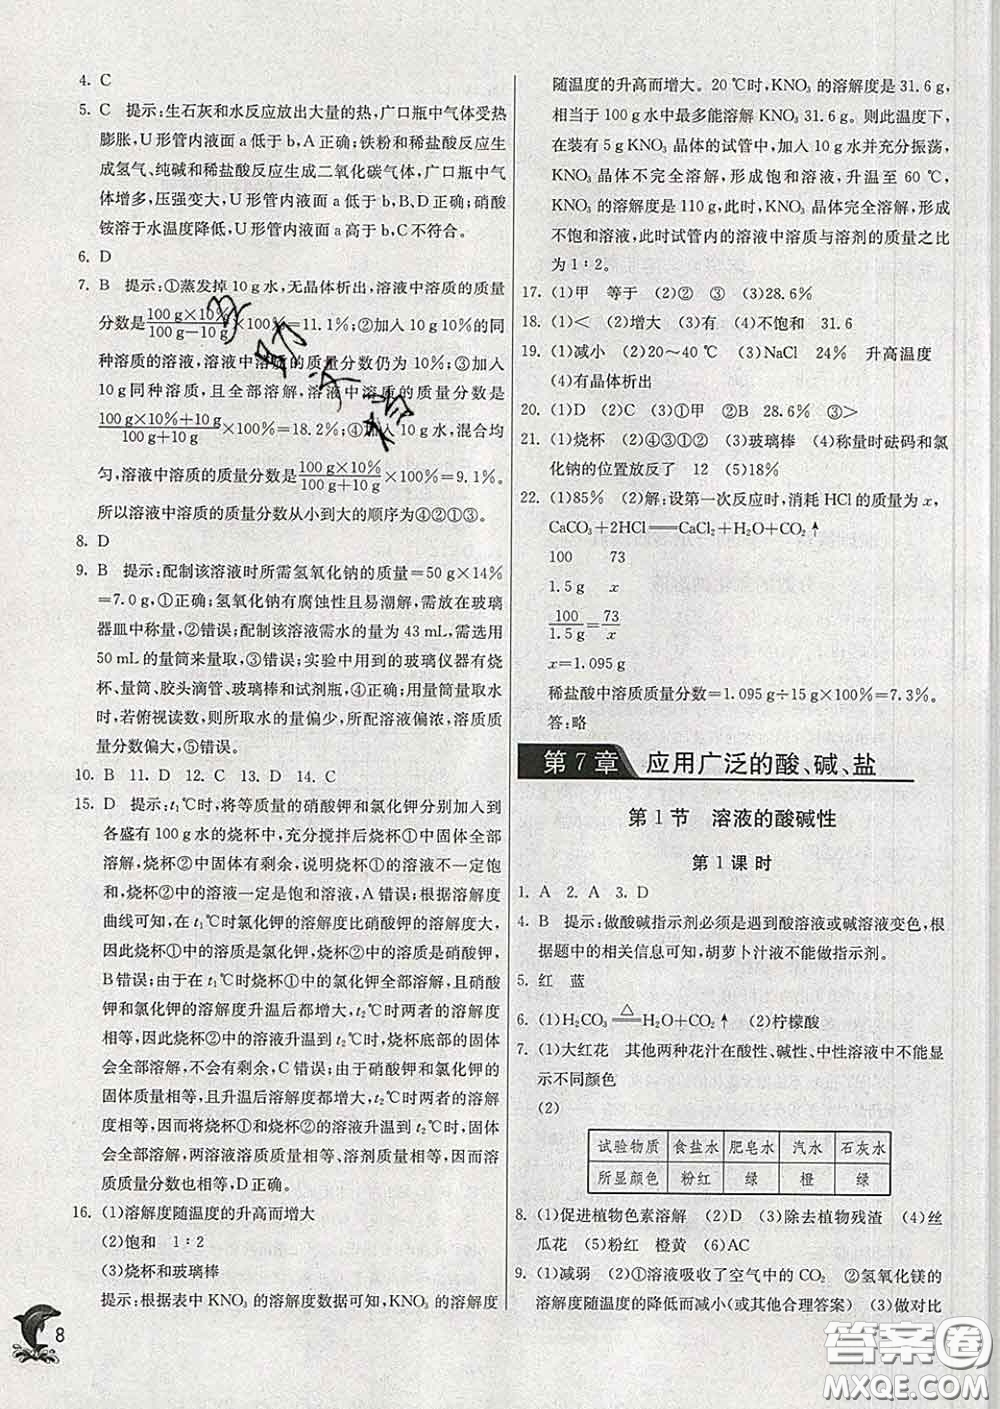 4. C
5. C 提示:生石灰和水反应放出大量的热,广口瓶中气体受热
膨胀,U 形管内液面 a 低于 b,A 正确;铁粉和稀盐酸反应生
成氢气、纯碱和稀盐酸反应生成二氧化碳气体,广口瓶中气
体增多,压强变大,U 形管内液面 a 低于 b,B、D 正确;硝酸
铵溶于水温度降低,U 形管内液面 a 高于 b,C 不符合。
6. D
7. B 提示:①蒸发掉 10 g 水,无晶体析出,溶液中溶质的质量
分数是 (100 g×10%)/(100 g−10 g)×100%=11.1%;②加入 10 g 10%的同
种溶质的溶液,溶液中溶质的质量分数仍为 10%;③加入
10 g 同种溶质,且全部溶解,溶液中溶质的质量分数是
(100 g×10%+10 g)/(100 g+10 g)×100%=18.2%;④加入 10 g 水,混合均
匀,溶液中溶质的质量分数是 (100 g×10%)/(100 g+10 g)×100%=9.1%。
所以溶液中溶质的质量分数从小到大的顺序为④②①③。
8. D
9. B 提示:配制该溶液时所需氢氧化钠的质量=50 g×14%
=7.0 g,①正确;氢氧化钠有腐蚀性且易潮解,需放在玻璃
器皿中称量,②错误;配制该溶液需水的量为 43 mL,需选用
50 mL 的量筒来量取,③错误;实验中用到的玻璃仪器有烧
杯、量筒、胶头滴管、玻璃棒和试剂瓶,④正确;用量筒量取水
时,若俯视读数,则所取水的量偏少,所配溶液偏浓,溶质质
量分数偏大,⑤错误。
10. B 11. D 12. C 13. D 14. C
15. D 提示:t₁℃时,将等质量的硝酸钾和氯化钾分别加入到
各盛有 100 g 水的烧杯中,充分搅拌后烧杯①中固体全部
溶解,烧杯②中固体有剩余,说明烧杯①的溶液不一定饱
和,烧杯②中的溶液一定是饱和溶液,A 错误;根据溶解度
曲线可知,在 t₁℃时氯化钾的溶解度比硝酸钾的溶解度大,
因此烧杯①中的溶质是氯化钾,烧杯②中的溶质是硝酸钾,
B 错误;由于在 t₁℃时烧杯①中氯化钾全部溶解,且硝酸
钾和氯化钾的溶解度升温后都增大,t₂℃时两者的溶解度
相等,因此烧杯②中的溶液升温到 t₂℃时,烧杯底部的固体
会全部溶解,不会有剩余,C 错误;由于硝酸钾和氯化钾的
固体质量相等,且升温后溶解度都增大,t₂℃时两者的溶解
度相等,因而将烧杯①和烧杯②的溶液升温到 t₂℃时,固体
会全部溶解,两溶液溶质质量相等、溶剂质量相等,因而溶
质质量分数也相等,D 正确。
16. (1)溶解度随温度的升高而增大
(2)饱和 1∶2
(3)烧杯和玻璃棒
提示:根据表中 KNO₃ 的溶解度数据可知,KNO₃ 的溶解度
8
随温度的升高而增大。20 ℃时,KNO₃ 的溶解度是 31.6 g,
相当于 100 g 水中最多能溶解 KNO₃ 31.6 g。则此温度下,
在装有 5 g KNO₃ 晶体的试管中,加入 10 g 水并充分振荡,
KNO₃ 晶体不完全溶解,形成饱和溶液,升温至 60 ℃,
KNO₃ 的溶解度是 110 g,此时,KNO₃ 晶体完全溶解,形成
不饱和溶液,此时试管内的溶液中溶质与溶剂的质量之比
为 1∶2。
17. (1)甲 等于 (2)② ③ (3)28.6%
18. (1)< (2)增大 (3)有 (4)不饱和 31.6
19. (1)减小 (2)20～40 ℃ (3)NaCl 24% 升高温度
(4)有晶体析出
20. (1)D (2)C (3)①甲 ②B 28.6% ③>
21. (1)烧杯 (2)④③①② (3)玻璃棒 (4)称量时砝码和氯
化钠的位置放反了 12 (5)18%
22. (1)85% (2)解:设第一次反应时,消耗 HCl 的质量为 x,
CaCO₃+2HCl══CaCl₂+H₂O+CO₂↑
100 73
1.5 g x
100/1.5 g=73/x
x=1.095 g
稀盐酸中溶质质量分数=1.095 g÷15 g×100%=7.3%。
答:略
第 7 章 应用广泛的酸、碱、盐
第 1 节 溶液的酸碱性
第 1 课时
1. A 2. A 3. D
4. B 提示:做酸碱指示剂必须是遇到酸溶液或碱溶液变色,根
据题中的相关信息可知,胡萝卜汁液不能做指示剂。
5. 红 蓝
6. (1)H₂CO₃ ══△ H₂O+CO₂↑ (2)柠檬酸
7. (1)大红花 其他两种花汁在酸性、碱性、中性溶液中不能显
示不同颜色
(2)
试验物质 食盐水 肥皂水 汽水 石灰水
所显颜色 粉红 绿 橙 绿
8. (1)促进植物色素溶解 (2)D (3)除去植物残渣 (4)丝
瓜花 (5)粉红 橙黄 (6)AC
9. (1)减弱 (2)①溶液吸收了空气中的 CO₂ ②氢氧化镁的
溶解度随温度的降低而减小(或其他合理答案) (3)做对比
答案圈
MXQE.COM